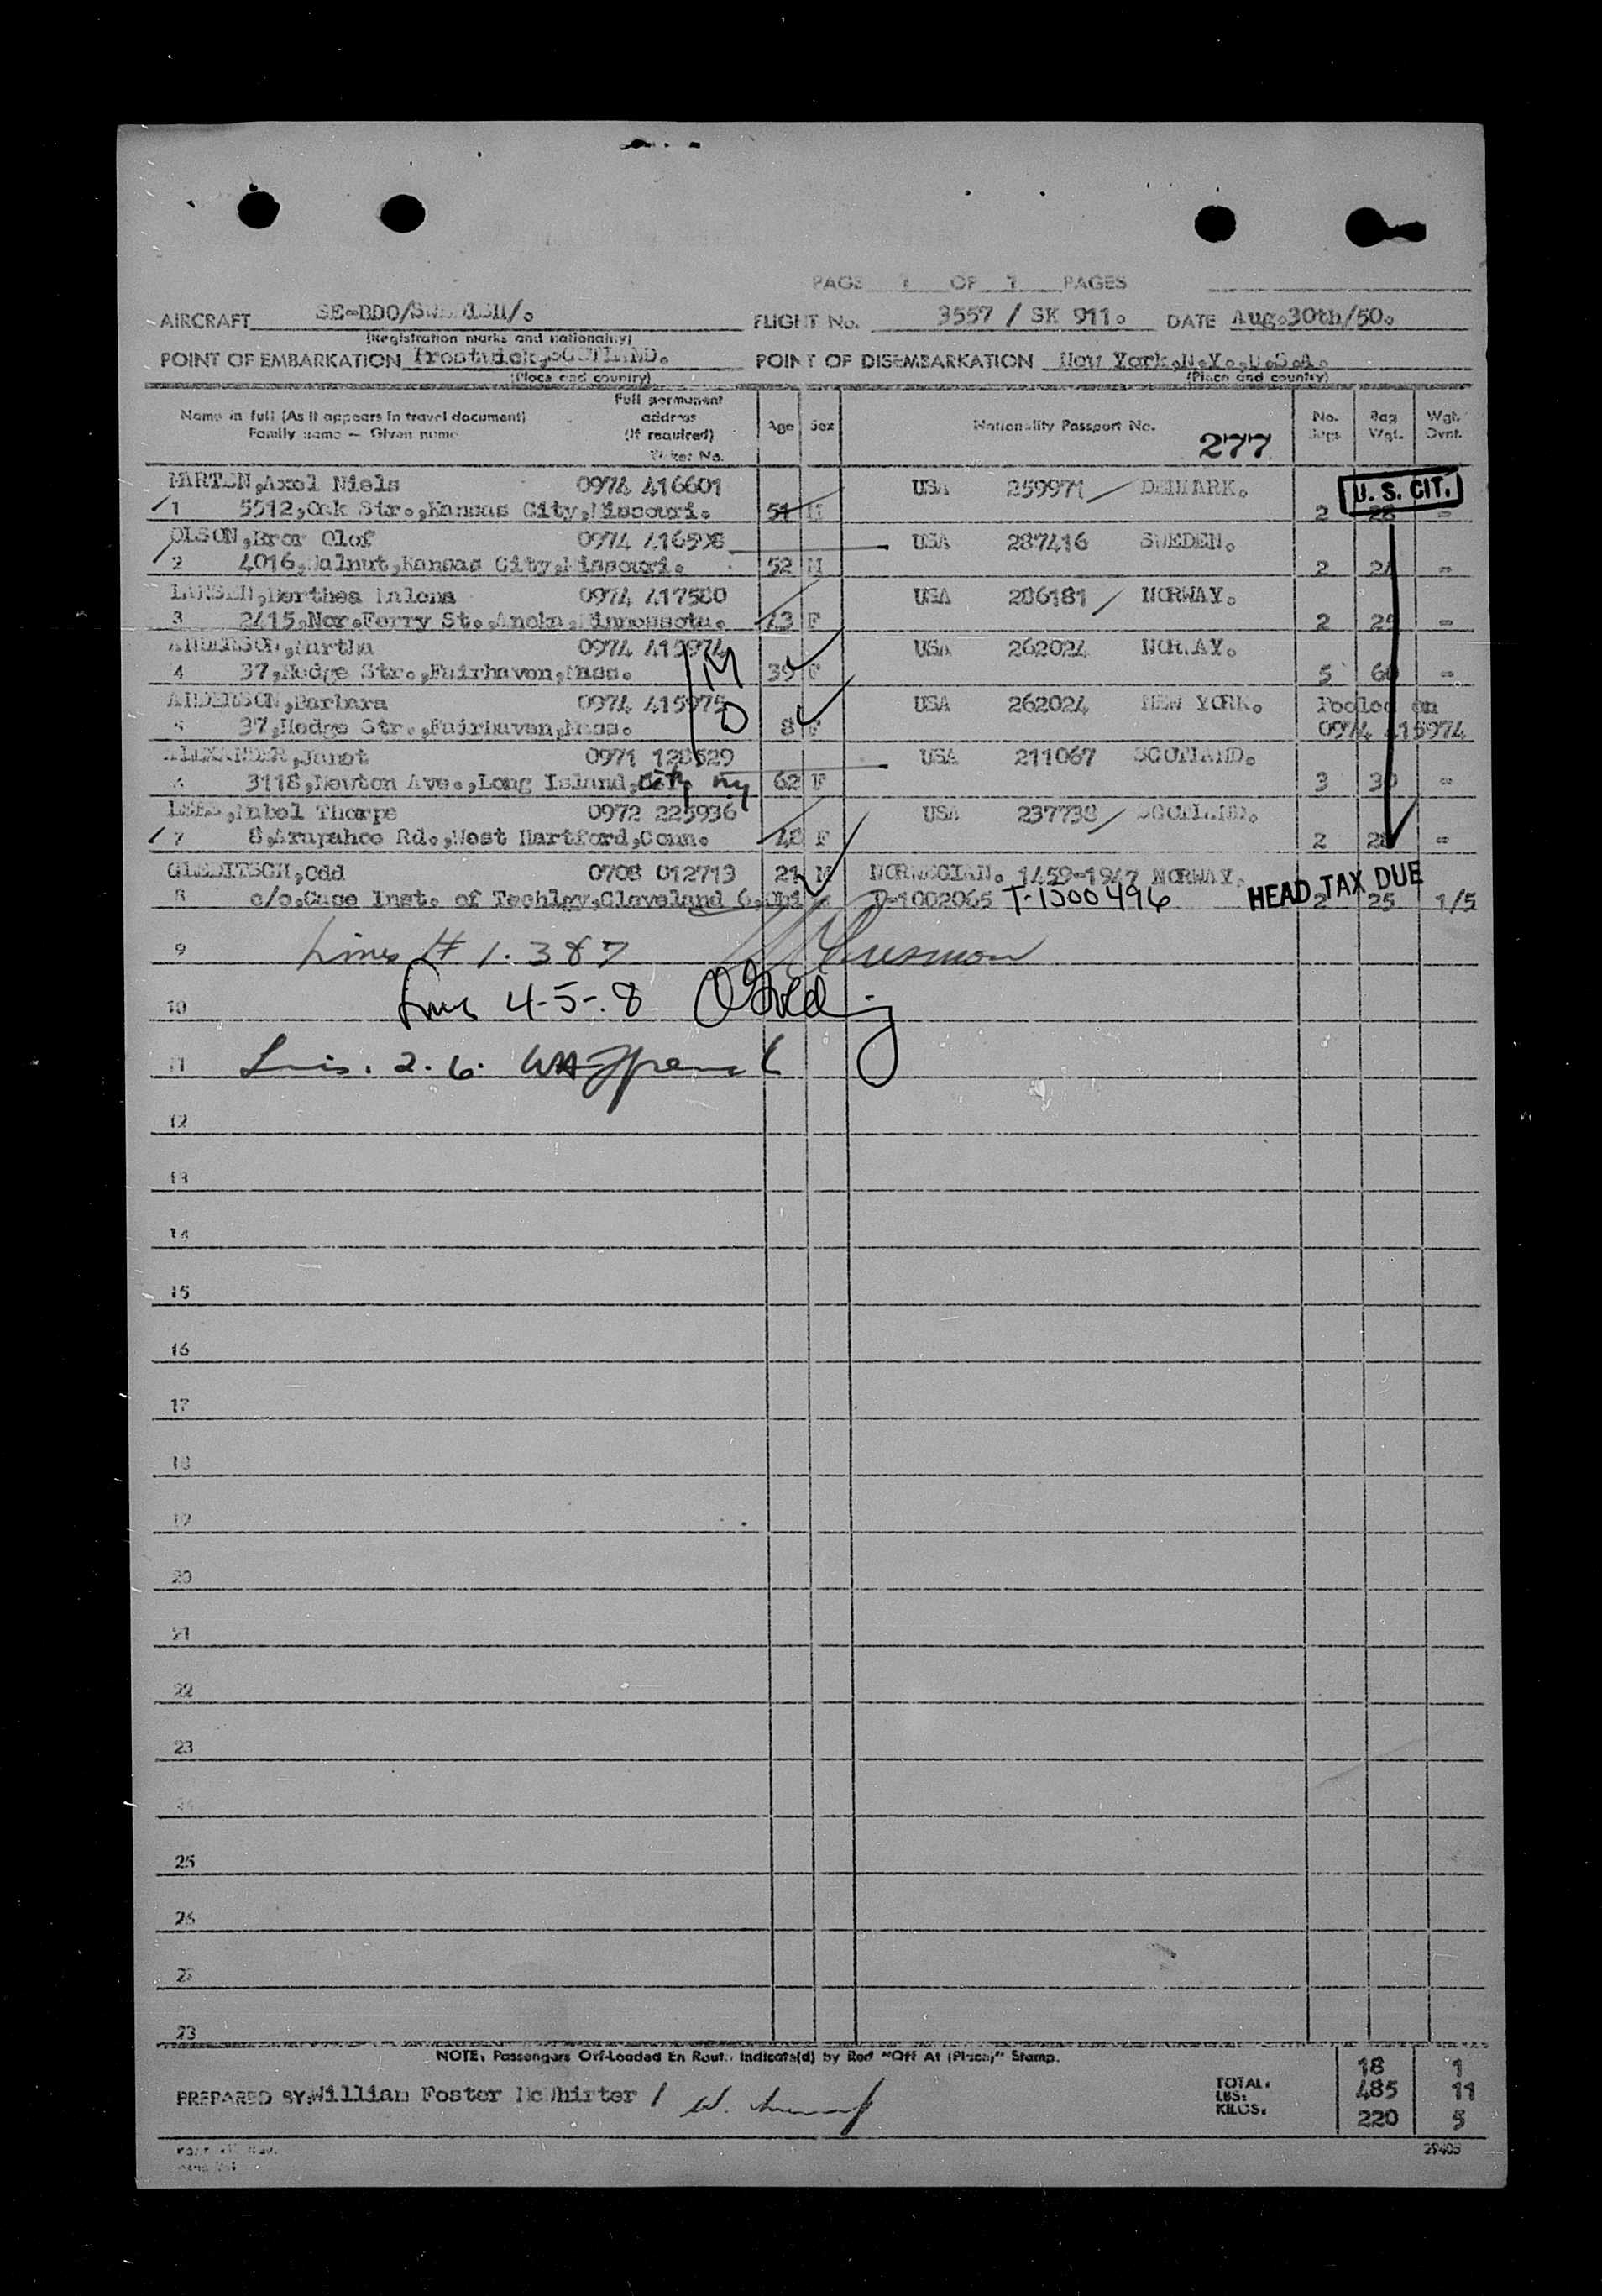 PAGE 1 OF 1 PAGES
AIRCRAFT SE-BDO/SWEDISH/. FLIGHT No. 3557 / SK 911. DATE Aug.30th/50.
(Registration marks and nationality)
POINT OF EMBARKATION Prestwick,SCOTLAND. POINT OF DISEMBARKATION New York.N.Y.,U.S.A.
(Place and country) (Place and country)
Name in full (As it appears in travel document) Full permanent address (If required) Age Sex Nationality Passport No. No. Bag Wgt.
Family name — Given name Ticket No. 277 Wgt.
MARTEN,Axel Niels 0974 416601 USA 259971 DENMARK. U. S. CIT.
1 5512,Oak Str.,Kansas City,Missouri. 51 M 2 28 -
OLSON,Bror Olof 0974 416598 USA 287416 SWEDEN.
2 4016,Walnut,Kansas City,Missouri. 52 M 2 24 -
LARSEN,Berthea 0974 417580 USA 286181 NORWAY.
3 2415,Nor.Ferry St.,Anoka,Minnessota. 43 F 2 25 -
ANDERSON,Martha 0974 415974 USA 262024 NORWAY.
4 37,Hedge Str.,Fairhaven,Mass. M 39 F 5 60 -
ANDERSON,Barbara 0974 415975 USA 262024 NEW YORK. Pooled on
5 37,Hedge Str.,Fairhaven,Mass. D 8 F 0974 415974
ALEXANDER,Janet 0971 128529 USA 211067 SCOTLAND.
3118,Newton Ave.,Long Island,City NY 62 F 3 30 -
LEES,Mabel Thorpe 0972 225936 USA 237738 SCOTLAND.
7 8,Arapahoe Rd.,West Hartford,Conn. 48 F 2 28 -
GLEDITSCH,Odd 0708 012713 21 M NORWEGIAN. 1459-1947 NORWAY.
8 c/o,Case Inst. of Techlgy,Cleveland 6, 1002065 T-1300496 HEAD TAX DUE 2 25 1/5
9 Lines # 1. 387
10 Lines 4-5-.8
11 Lines. 2. 6.
12
13
14
15
16
17
18
19
20
21
22
23
24
25
26
27
NOTE: Passengers Off-Loaded En Route Indicate(d) by Red "Off At (Place)" Stamp.
18 1
PREPARED BY: William Foster McWhirter / TOTAL. LBS. 485 11
KILOS. 220 5
29405